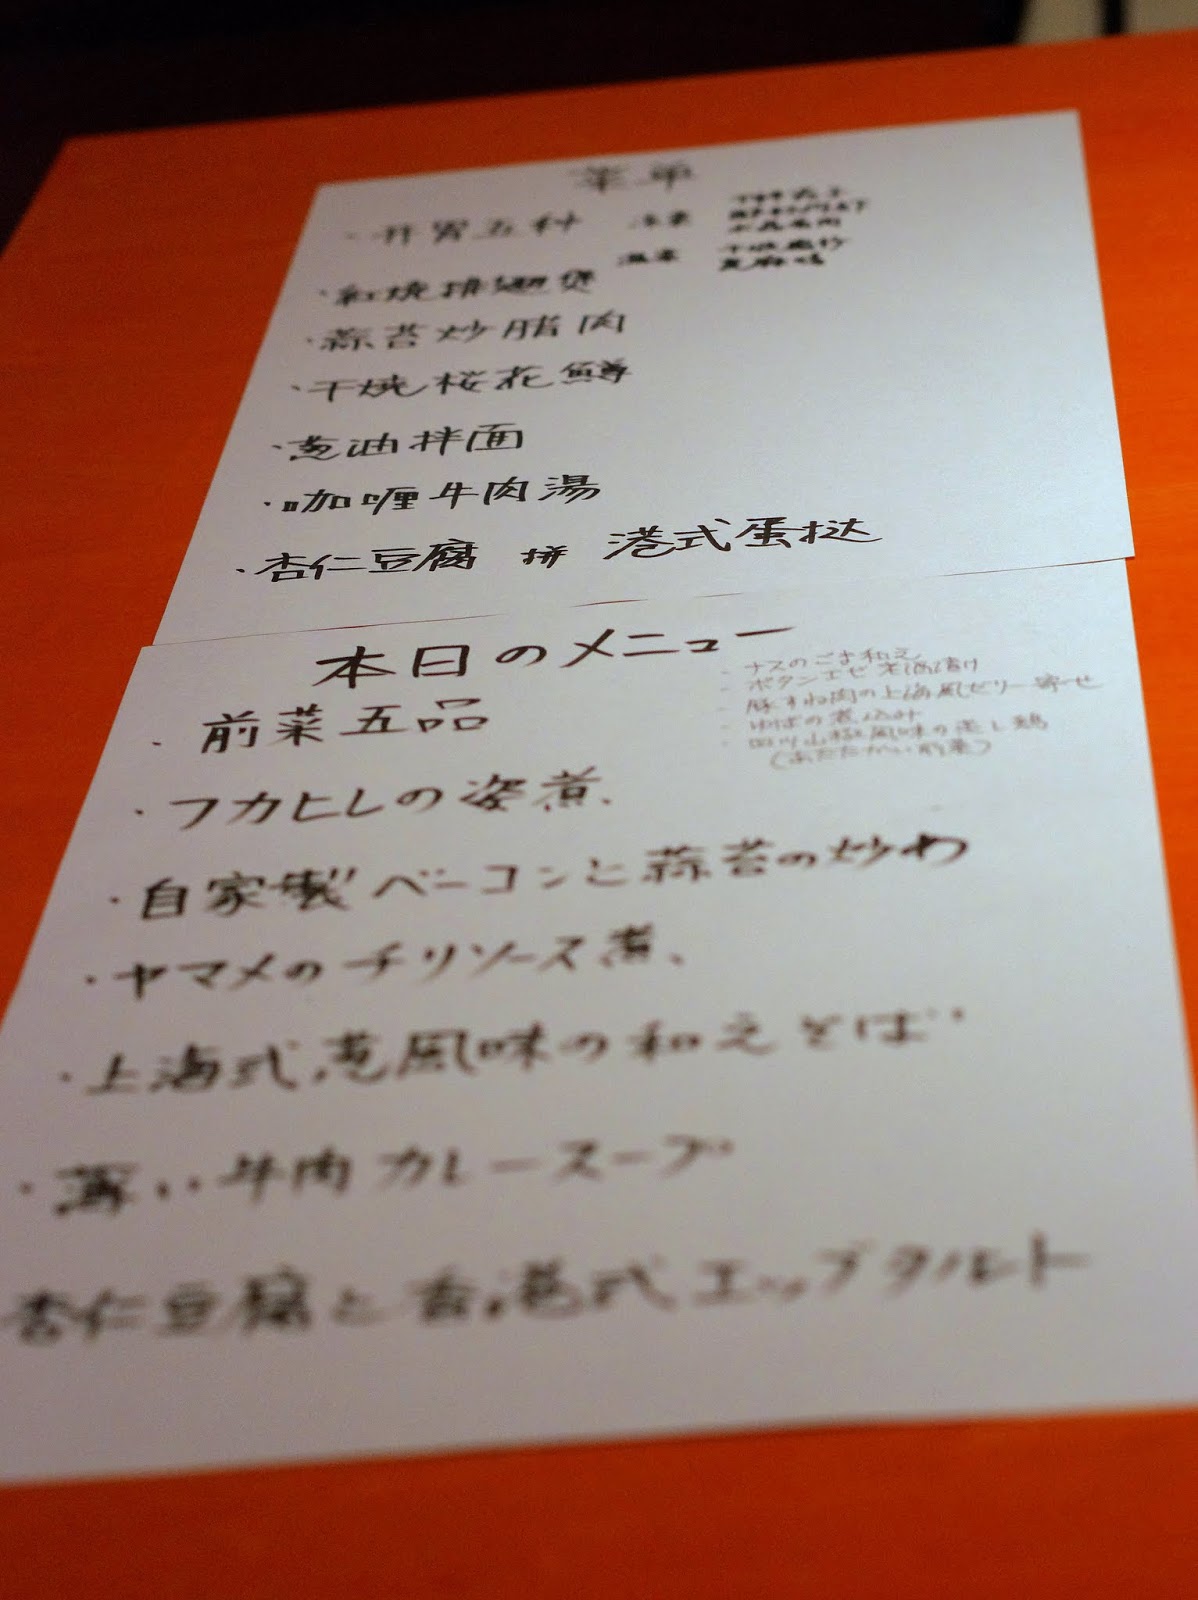 菜单
・开胃五种 冷菜
温菜
・紅焼排翅煲
・蒜苔炒腊肉
・干焼桜花鱒
・葱油拌面
・咖喱牛肉湯
・杏仁豆腐 拼 港式蛋挞
本日のメニュー
・前菜五品
- ナスのごま和え
- ボタンエビ老酒漬け
- 豚すね肉の上海風ゼリー寄せ
- ゆばの煮込み
- 四川山椒風味の蒸し鶏
(あたたかい前菜)
・フカヒレの姿煮、
・自家製ベーコンと蒜苔の炒め
・ヤマメのチリソース煮、
・上海式葱風味の和えそば
・薄い牛肉カレースープ
杏仁豆腐と香港式エッグタルト